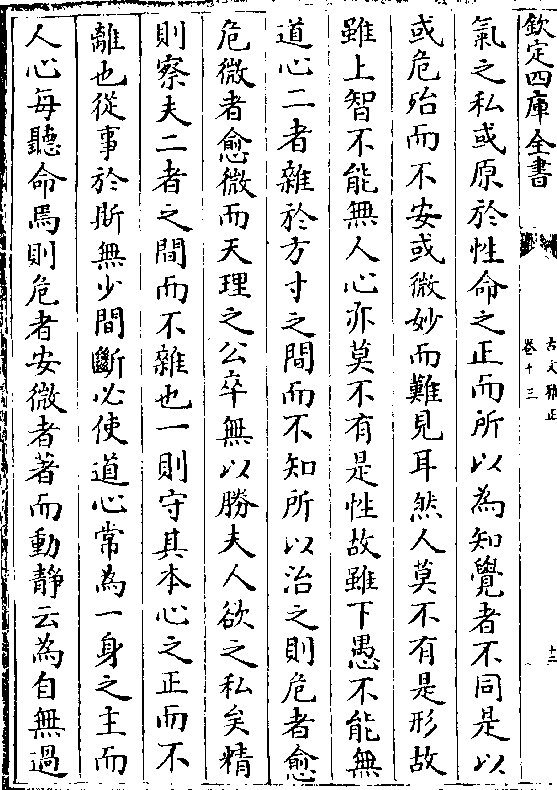 欽定四庫全書
古文雅正
卷十三
十三
氣之私或原於性命之正而所以為知覺者不同是以
或危殆而不安或微妙而難見耳然人莫不有是形故
雖上智不能無人心亦莫不有是性故雖下愚不能無
道心二者雜於方寸之間而不知所以治之則危者愈
危微者愈微而天理之公卒無以勝夫人欲之私矣精
則察夫二者之間而不雜也一則守其本心之正而不
離也從事於斯無少間斷必使道心常為一身之主而
人心每聽命焉則危者安微者著而動靜云為自無過